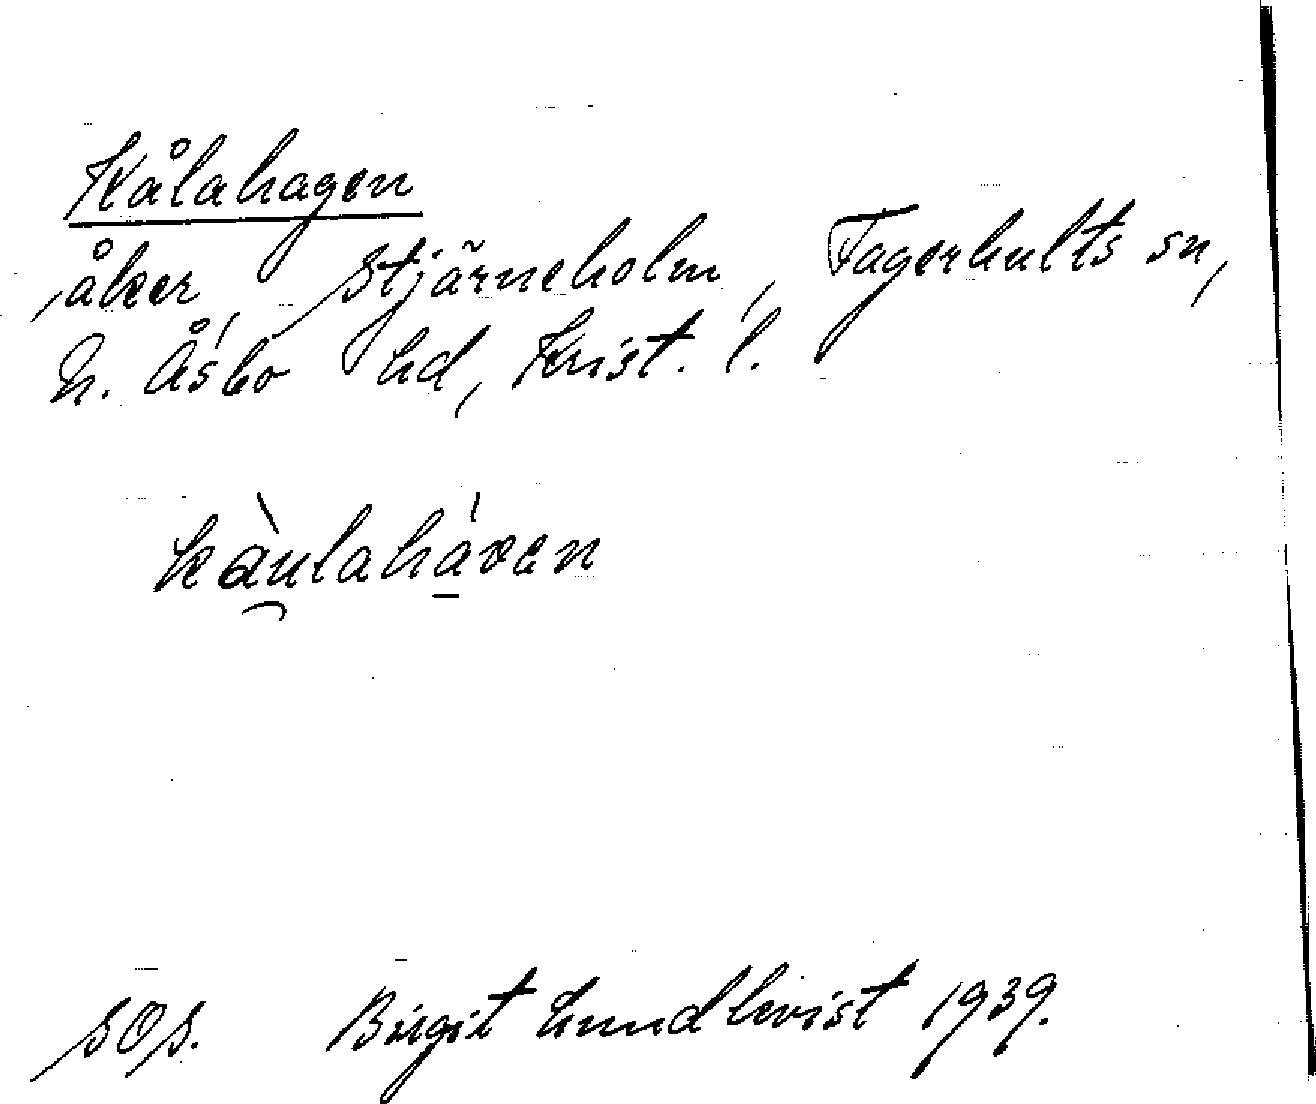 Kålahagen
åker, Stjärneholm, Fagerhults sn,
N. Åsbo hd, Krist. l.
kàulaháven
SOS. Birgit Lundkvist 1939.